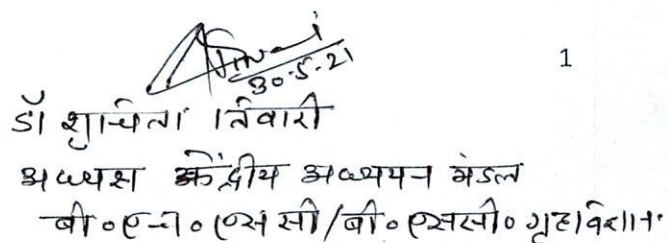 30-5-21
1
डॉ शुचिता तिवारी
अध्यक्ष केंद्रीय अध्ययन मंडल
बी०एच०एससी/बी०एससी० गृहविज्ञान